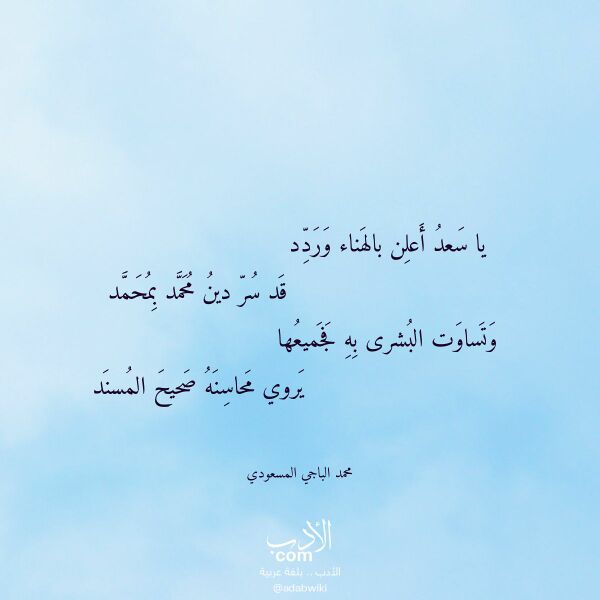 يا سَعدُ أَعلِن بالهَناء وَرَدِّد
قَد سُرّ دينُ مُحَمَّد بِمُحَمَّد
وَتَساوَت البُشرى بِهِ فَجَميعُها
يَروي مَحاسِنَهُ صَحيحَ المُسنَد
محمد الباجي المسعودي
الأدب
com
الأدب .. بلغة عربية
@adabwiki